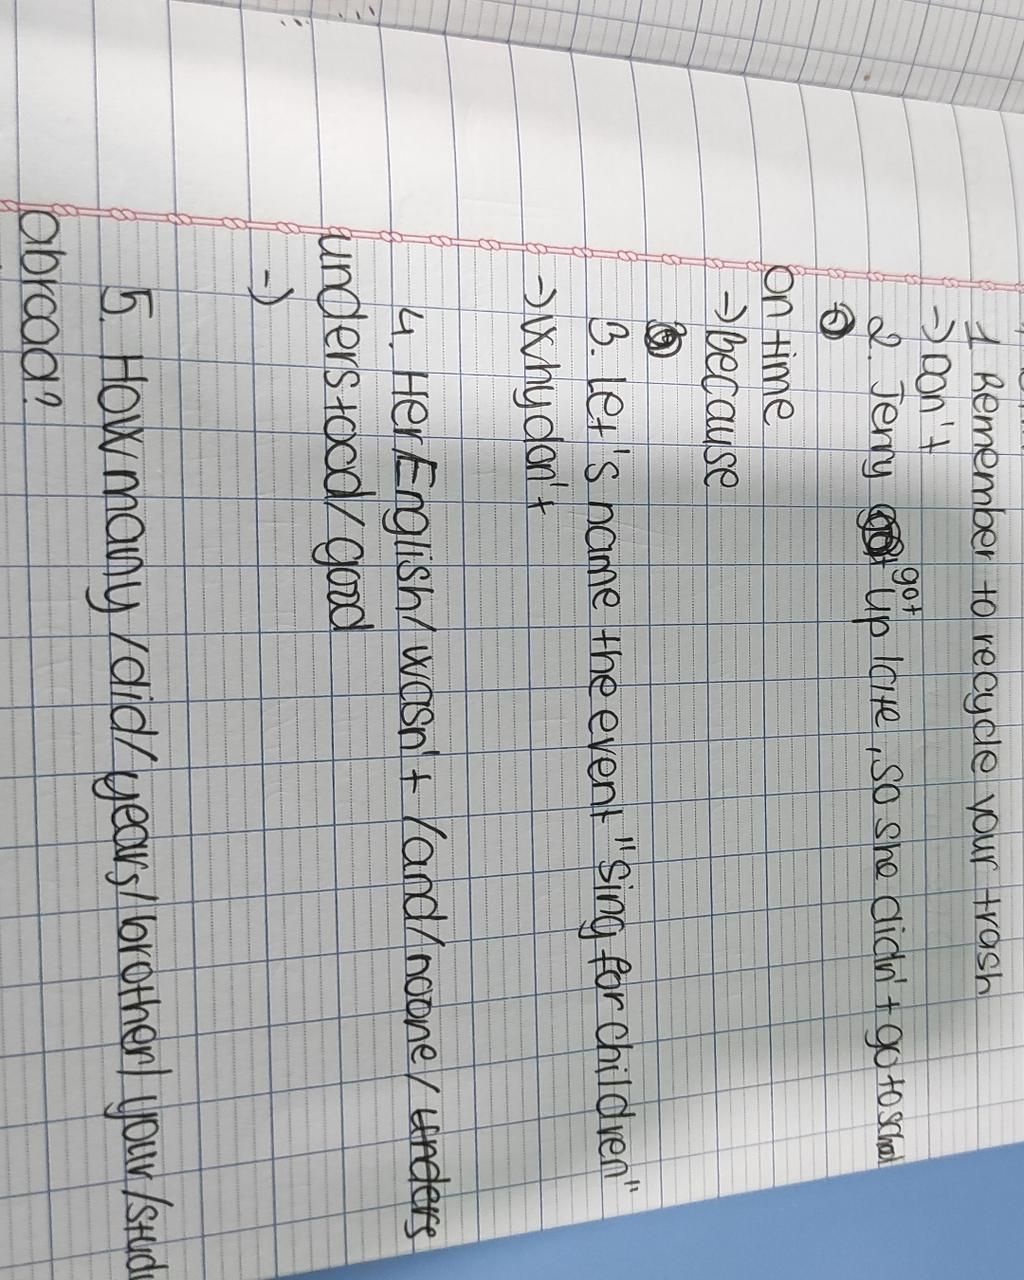 1 Remember to recycle your trash
-) Don't
2. Jerry got up late, so she didn't go to school
on time
-) Because
3. Let's name the event "Sing for children"
-) Why don't
4. Her/English/ wasn't /and/noone/ unders
understood/good
-)
5. How many /did/years/brother/ your/stud
abroad?